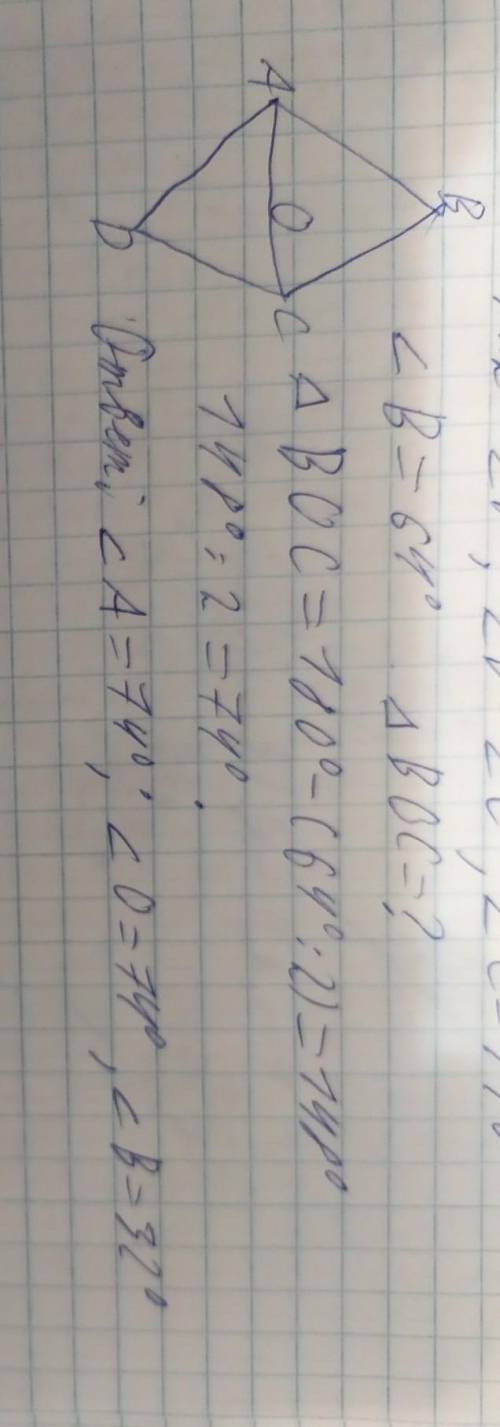 A
B
O
D
C
< B = 64° Δ BOC = ?
Δ BOC = 180° - (64° : 2) = 148°
148° : 2 = 74°.
Ответ: < A = 74°, < O = 74°, < B = 32°